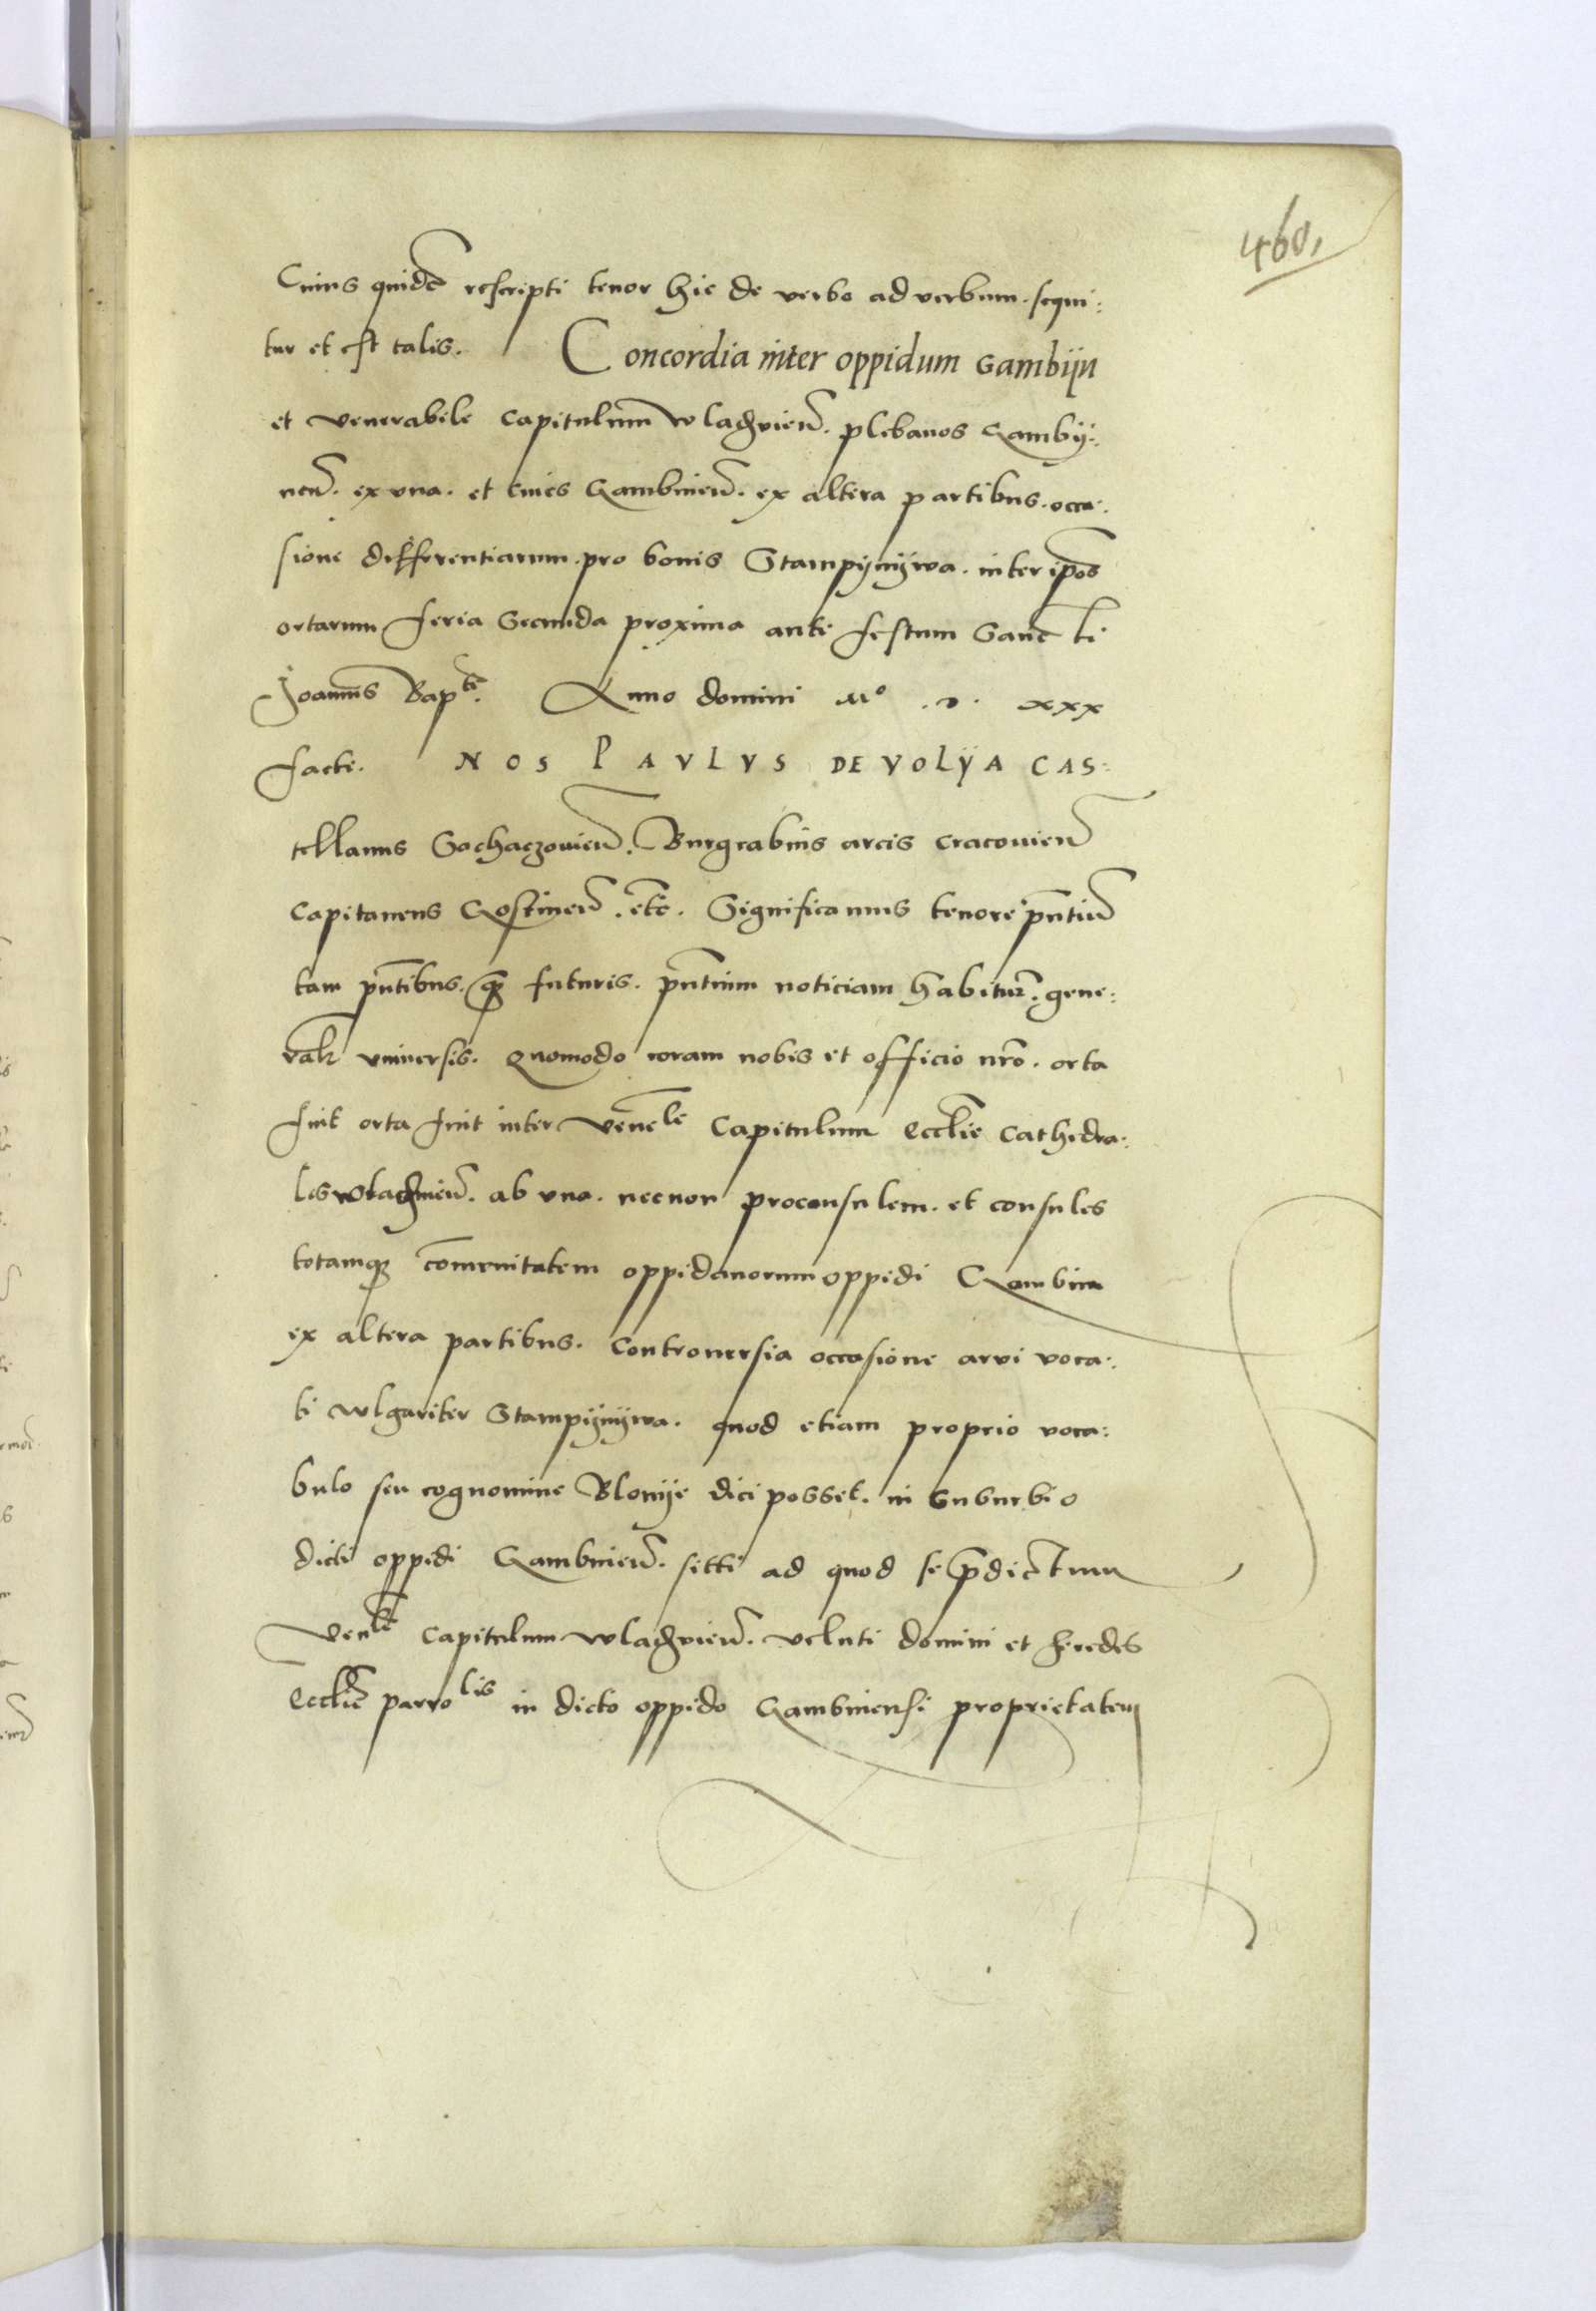 460,
Cuius quidē rescripti tenor hic de verbo ad verbum. sequi:
tur et est talis. Concordia inter oppidum Gambijn
et venerabile Capitulum wladzvien̄. plebanos Gambij:
nen̄. ex vna. et Ciues Gambinien̄. ex altera partibus. occa:
sione differentiarum. pro bonis Stampijnijwa. inter ip̄os
ortarum feria Secunda proxima ante festum Sancti
Joannis Bapte. Anno domini Mo .D. xxx
facte. NOS PAVLVS DE VOLŸA CAS:
tellanus Sochaczouien̄. Burgrabius arcis Cracouien̄
Capitaneus Gostinen̄. etc̄. Significamus tenore pn̄tiū
tam pn̄tibus. q̄ȝ futuris. pn̄tium noticiam habitur̄. gene:
ralr̄ vniuersis. Quomodo coram nobis et officio nr̄o. orta
fuit orta fuit inter venele Capitulum Eccl̄ie Cathedra:
lis wladzvien̄. ab vna. necnon proconsulem. et consules
totamqȝ com̄unitatem oppidanorum oppidi Gambin
ex altera partibus. Controuersia occasione arvi voca:
ti wlgariter Stampijnijwa. quod etiam proprio voca:
bulo seu cognomine Blonije dici posset. in Suburbio
dicti oppidi Gambinien̄. sitti ad quod se p̄dictum
venle Capitulum wladzvien̄. veluti domini et heredes
Eccl̄ie parrolis in dicto oppido Gambiniensi proprietatem